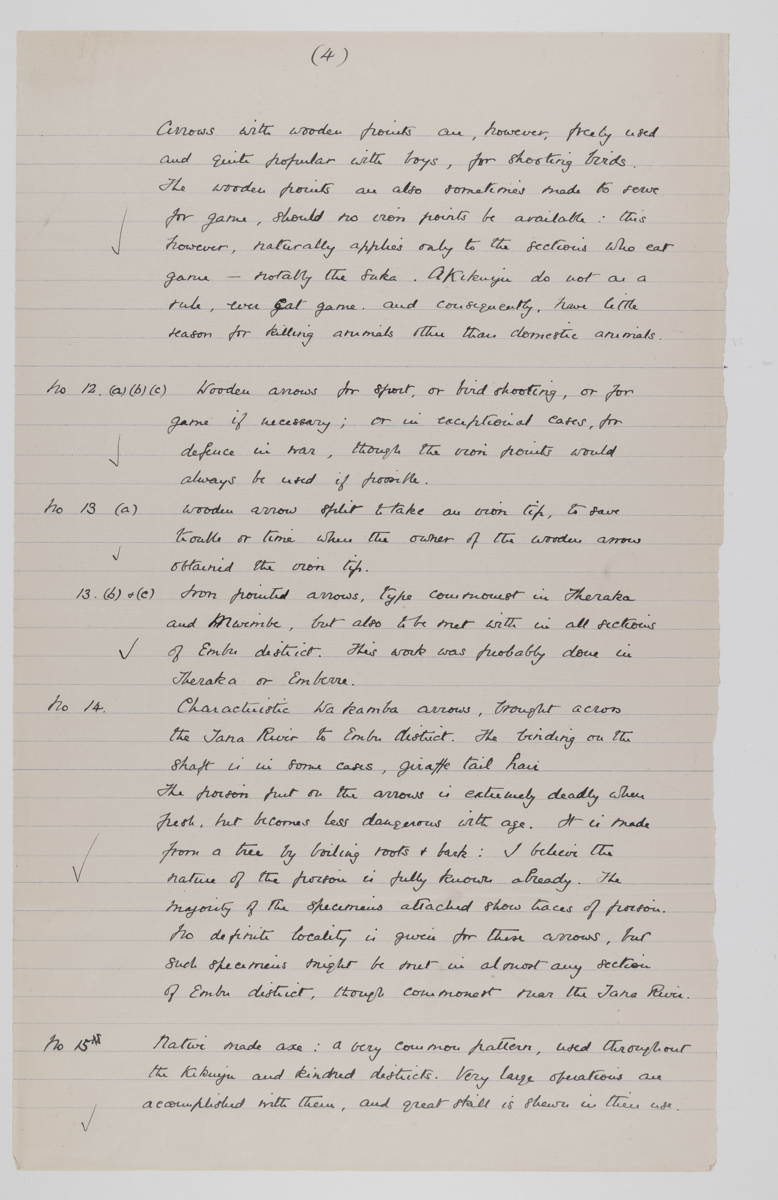 (4)
Arrows with wooden points are, however, freely used
and quite popular with boys, for shooting birds.
The wooden points are also sometimes made to serve
for game, should no iron points be available : this
however, naturally applies only to the sections who eat
game — notably the Suka. AKikuyu do not as a
rule, ever eat game. and consequently, have little
reason for killing animals other than domestic animals.
No 12. (a)(b)(c) Wooden arrows for sport, or bird shooting, or for
game if necessary ; or in exceptional cases, for
defence in war, though the iron points would
always be used if possible.
No 13 (a) wooden arrow split to take an iron tip, to save
trouble or time when the owner of the wooden arrow
obtained the iron tip.
13. (b) & (c) Iron pointed arrows, type commonest in Theraka
and Mwimbe, but also to be met with in all sections
of Embu district. This work was probably done in
Theraka or Emberre.
No 14. Characteristic Wakamba arrows, brought across
the Tana River to Embu district. The binding on the
shaft is in some cases, giraffe tail hair
The poison put on the arrows is extremely deadly when
fresh, but becomes less dangerous with age. It is made
from a tree by boiling roots & bark : I believe the
nature of the poison is fully known already. The
majority of the specimens attached show traces of poison.
No definite locality is given for these arrows, but
such specimens might be met in almost any section
of Embu district, though commonest near the Tana River.
No 15 Native made axe : a very common pattern, used throughout
the Kikuyu and kindred districts. Very large operations are
accomplished with them, and great skill is shewn in their use.